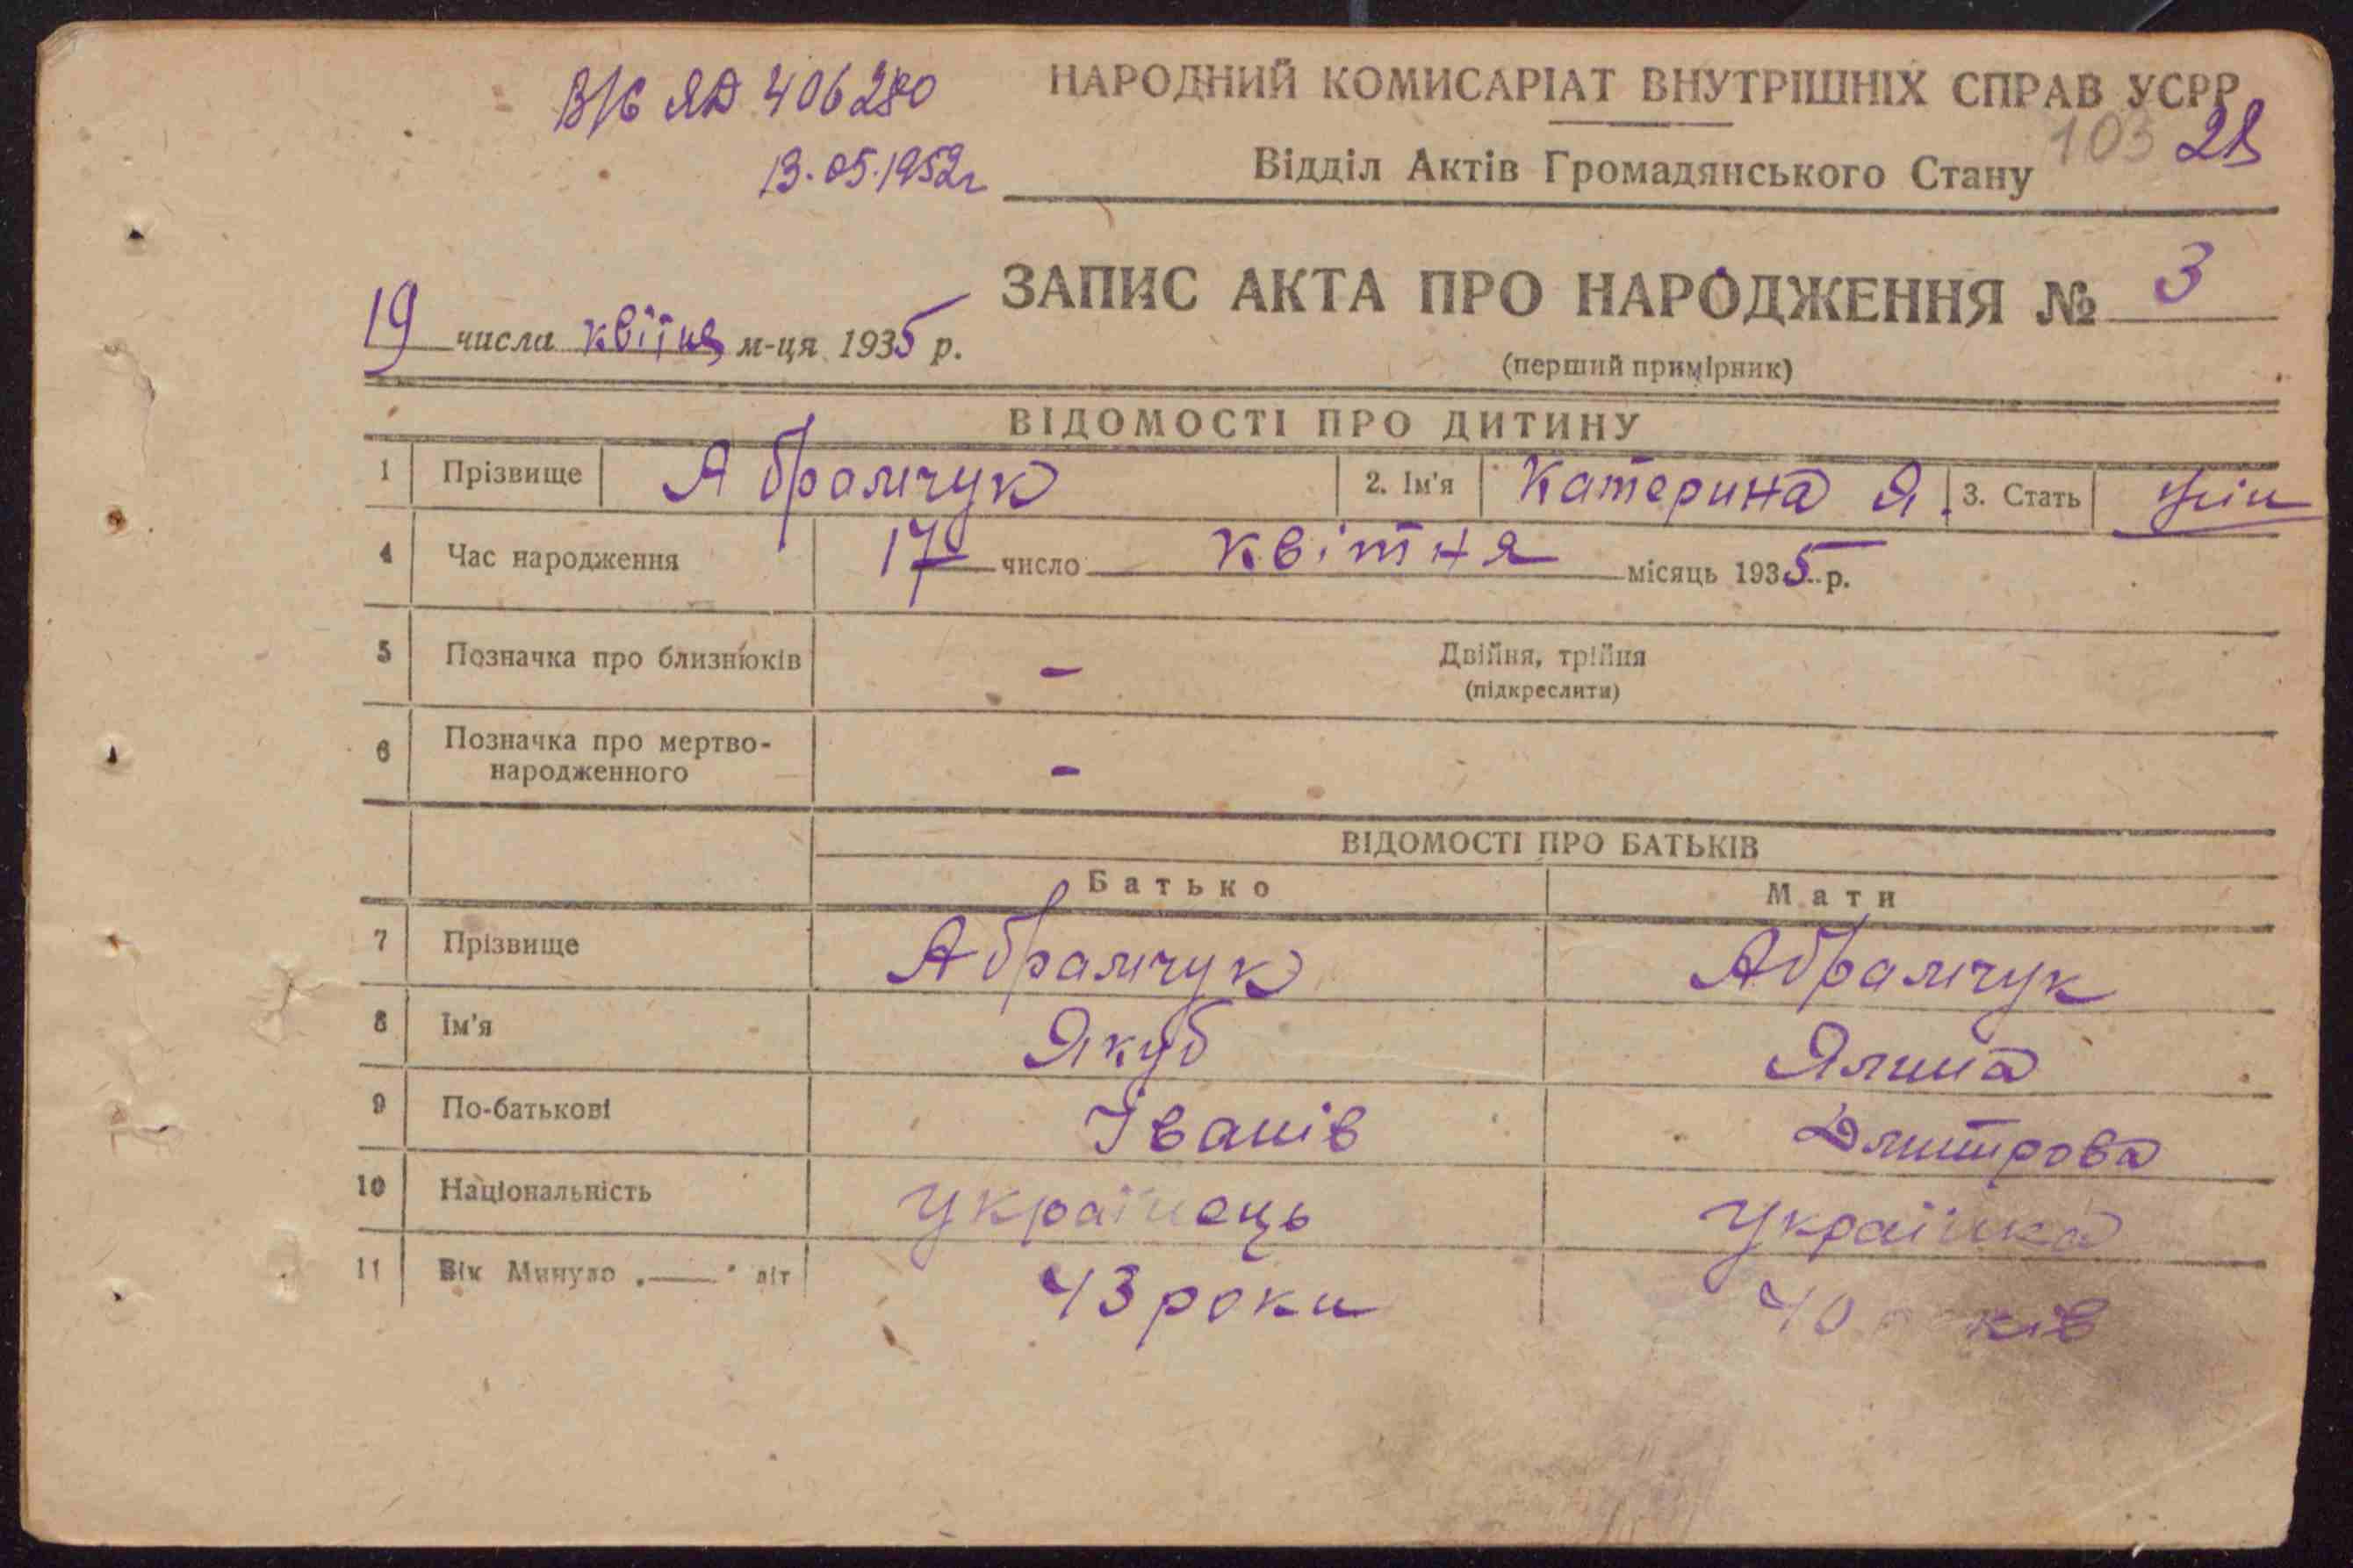 В/с ЯД 406280
13.05.1952г
НАРОДНИЙ КОМИСАРІАТ ВНУТРІШНІХ СПРАВ УСРР
103 28
Відділ Актів Громадянського Стану
ЗАПИС АКТА ПРО НАРОДЖЕННЯ № 3
19 числа квітня м-ця 1935 р.
(перший примірник)
ВІДОМОСТІ ПРО ДИТИНУ
1 Прізвище Абрамчук 2. Ім'я Катерина Я. 3. Стать жін
4 Час народження 17 число квітня місяць 1935 р.
5 Позначка про близнюків - Двійня, трійня
(підкреслити)
6 Позначка про мертво-
народженного -
ВІДОМОСТІ ПРО БАТЬКІВ
Батько Мати
7 Прізвище Абрамчук Абрамчук
8 Ім'я Якуб Ялина
9 По-батькові Іванів Дмитрова
10 Національність Українець Українка
11 Вік Минуло „—" літ 43 роки 40 років